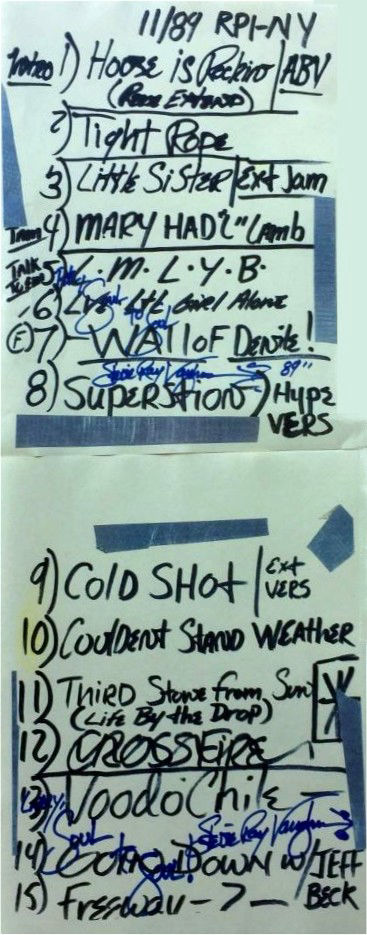 11/89 RPI-NY
Intro 1) Hoose is Rockin / ABV
(Reese Extend)
2) Tight Rope
3) Little SiSTER / Ext Jam
4) MARY HAD "L" Lamb
Talk
5) L.M.L.Y.B.
6) Little Girl Alone
(F) 7) WAll OF Denile!
Stevie Ray Vaughan 89"
8) SupeRStion) Hype
VERS
9) COLD SHOt / Ext
VERS
10) COulDent StanD WEATHER
11) THirD Stone from Sun
(LiFe By the Drop)
12) CROSSFiRE
13) VoodoChile
Soul to Soul! Stevie Ray Vaughan
14) GOiNg DOWN w/ JEFF
BECK
15) Freeway ->